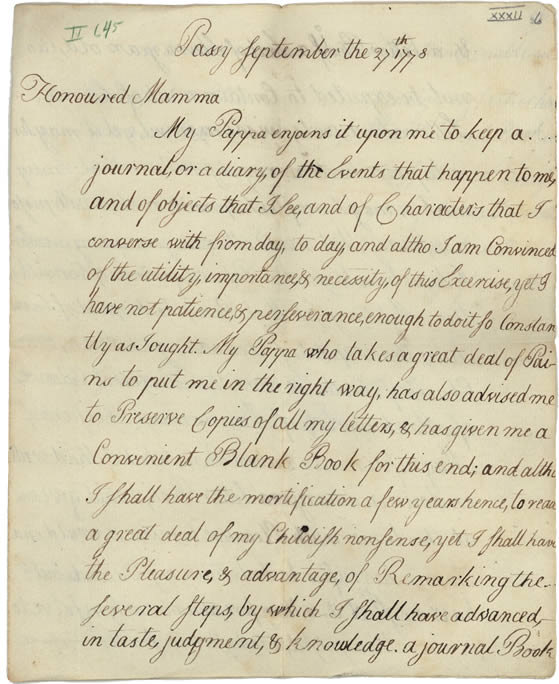 II 1.45
XXXII 6
Passy September the 27th 1778
Honoured Mamma
My Pappa enjoins it upon me to keep a
journal, or a diary, of the Events that happen to me,
and of objects that I See, and of Characters that I
converse with from day, to day, and altho I am Convinced
of the utility, importance, & necessity, of this Exercise, yet I
have not patience, & perseverance, enough to do it so Constan
tly as I ought. My Pappa who takes a great deal of Pai-
ns to put me in the right way, has also advised me
to Preserve Copies of all my letters, & has given me a
Convenient Blank Book for this end; and altho
I shall have the mortification a few years hence, to read
a great deal of my Childish nonsense, yet I shall have
the Pleasure, & advantage, of Remarking the
several steps, by which I shall have advanced,
in taste, judgment, & knowledge. a journal Book